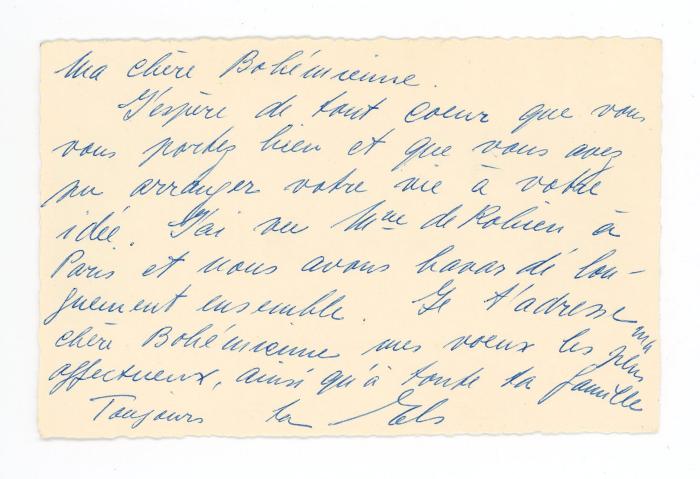 Ma chère Bohémienne.
J'espère de tout coeur que vous
vous portez bien et que vous avez
pu arranger votre vie à votre
idée. J'ai vu Mme de Robien à
Paris et nous avons bavardé lon-
guement ensemble. Je t'adresse ma
chère Bohémienne mes voeux les plus
affectueux, ainsi qu'à toute ta famille
Toujours ta Els